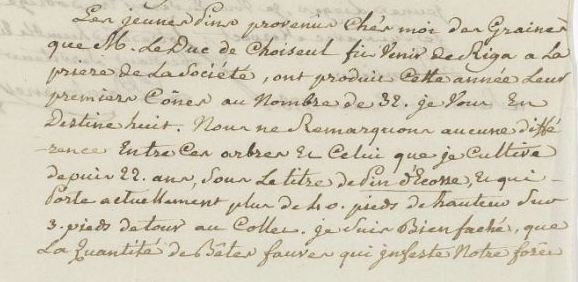 Les jeunes Pins provenus Chés moi des Graines
que M. Le Duc de Choiseul fit Venir de Riga a La
priere de La Société, ont produit Cette année Leurs
premiers Cônes au Nombre de 32. je Vous En
Destine huit. Nous ne Remarquons aucune diffé
-rence Entre Ces arbres Et Celui que je Cultive
depuis 22. ans, Sous Le titre de Pin d'Ecosse, Et qui
Porte actuellement plus de 40. pieds de hauteur Sur
3. pieds de tour au Collet. je Suis Bien faché, que
La Quantité de Bêtes fauves qui jnfeste Notre forêt